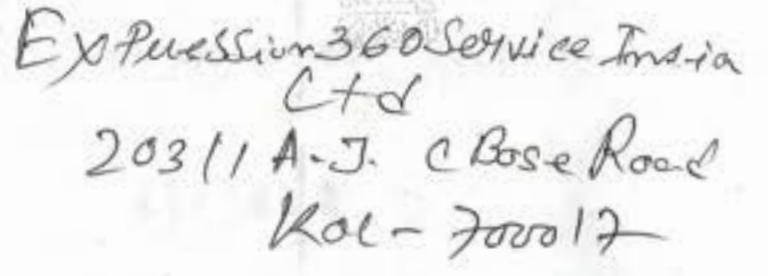 Expression 360 Service India
Ltd
203/1 A.J. C Bose Road
Kol - 700017